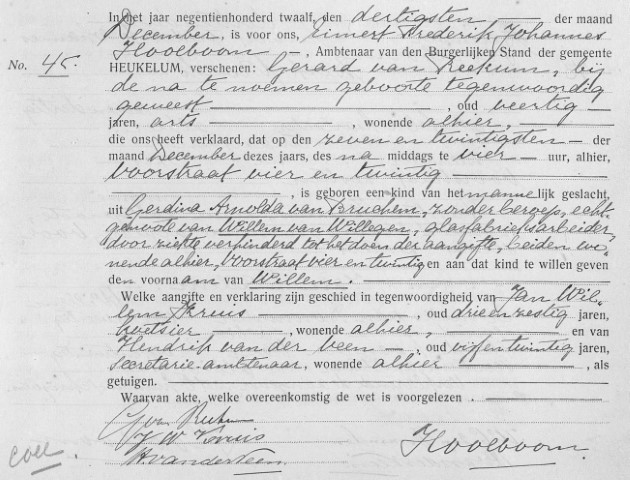 In het jaar negentienhonderd twaalf, den dertigsten der maand
December, is voor ons, Eimert Frederik Johannes
Hooelboom, Ambtenaar van den Burgerlijken Stand der gemeente
No. 45. HEUKELUM, verschenen: Gerard van Reekum, bij
de na te noemen geboorte tegenwoordig
geweest, oud veertig
jaren, arts, wonende alhier,
die ons heeft verklaard, dat op den zeven en twintigsten der
maand December dezes jaars, des na middags te vier uur, alhier,
Voorstraat vier en twintig
, is geboren een kind van het mannelijk geslacht,
uit Gerdina Arnolda van Bruchem, zonder beroep, echt-
genoote van Willem van Willegen, glasfabrieksarbeider,
door ziekte verhinderd tot het doen der aangifte, beiden wo-
nende alhier, Voorstraat vier en twintig en aan dat kind te willen geven
den voornaam van Willem.
Welke aangifte en verklaring zijn geschied in tegenwoordigheid van Jan Wil-
lem Kruis, oud drie en zestig jaren,
koetsier, wonende alhier, en van
Hendrik van der Veen, oud vijf en twintig jaren,
secretarie-ambtenaar, wonende alhier, als
getuigen.
Waarvan akte, welke overeenkomstig de wet is voorgelezen.
G van Reekum
J W Kruis
H. van der Veen. Hooelboom.
coll.